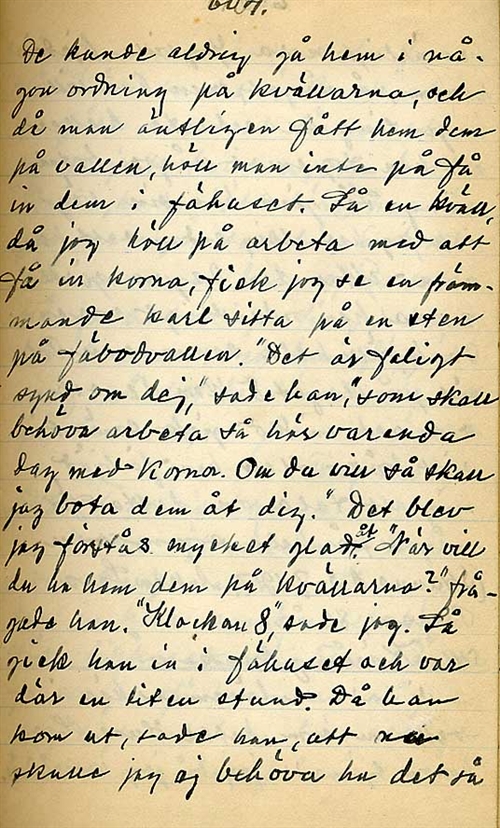 De kunde aldrig gå hem i nå-
gon ordning på kvällarna, och
då man äntligen fått hem dem
på vallen, höll man inte på få
in dem i fähuset. Så en kväll,
då jag höll på arbeta med att
få in korna, fick jag se en främ-
mande karl sitta på en sten
på fäbodvallen. "Det är faligt
synd om dej," sade han, "som skall
behöva arbeta så här varenda
dag med korna. Om du vill så skall
jag bota dem åt dig." Det blev
jag förstås mycket glad åt. "När vill
du ha hem dem på kvällarna?" frå-
gade han. "Klockan 8," sade jag. Så
gick han in i fähuset och var
där en liten stund. Då han
kom ut, sade han, att nu
skulle jag ej behöva ha det så